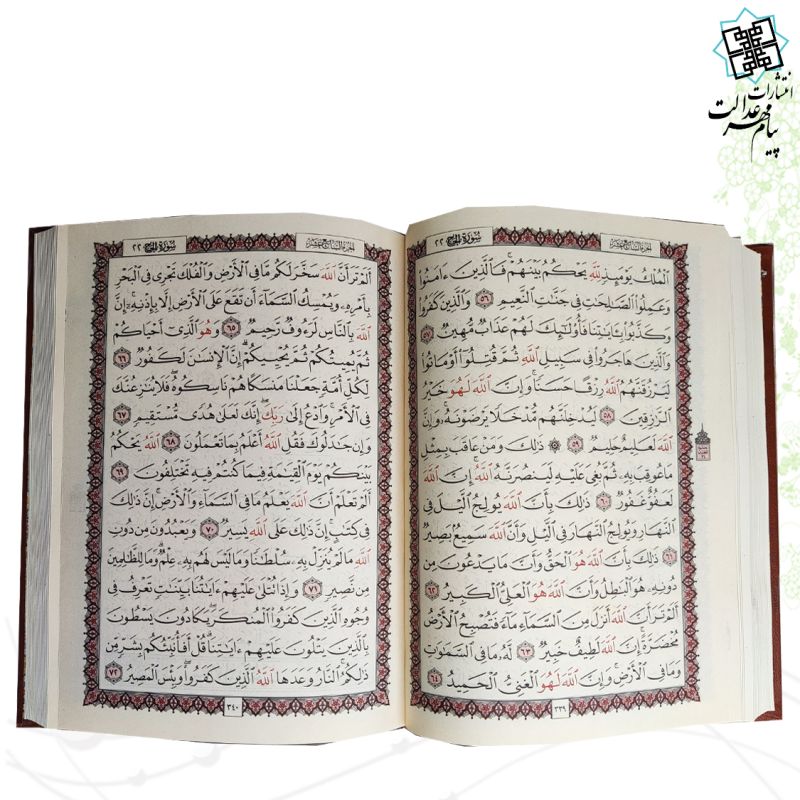 انتشارات
پیام مهر عدالت
سُورَةُ الحَجّ ٢٢
الجزء السابع عشر
ٱلْمُلْكُ يَوْمَئِذٍ لِّلَّهِ يَحْكُمُ بَيْنَهُمْ ۚ فَٱلَّذِينَ ءَامَنُوا۟
وَعَمِلُوا۟ ٱلصَّٰلِحَٰتِ فِى جَنَّٰتِ ٱلنَّعِيمِ ٥٦ وَٱلَّذِينَ كَفَرُوا۟
وَكَذَّبُوا۟ بِـَٔايَٰتِنَا فَأُو۟لَٰٓئِكَ لَهُمْ عَذَابٌ مُّهِينٌ ٥٧
وَٱلَّذِينَ هَاجَرُوا۟ فِى سَبِيلِ ٱللَّهِ ثُمَّ قُتِلُوٓا۟ أَوْ مَاتُوا۟
لَيَرْزُقَنَّهُمُ ٱللَّهُ رِزْقًا حَسَنًا ۚ وَإِنَّ ٱللَّهَ لَهُوَ خَيْرُ
ٱلرَّٰزِقِينَ ٥٨ لَيُدْخِلَنَّهُم مُّدْخَلًا يَرْضَوْنَهُۥ ۗ وَإِنَّ
ٱللَّهَ لَعَلِيمٌ حَلِيمٌ ٥٩ ۞ ذَٰلِكَ وَمَنْ عَاقَبَ بِمِثْلِ
مَا عُوقِبَ بِهِۦ ثُمَّ بُغِىَ عَلَيْهِ لَيَنصُرَنَّهُ ٱللَّهُ ۗ إِنَّ ٱللَّهَ
لَعَفُوٌّ غَفُورٌ ٦٠ ذَٰلِكَ بِأَنَّ ٱللَّهَ يُولِجُ ٱلَّيْلَ فِى
ٱلنَّهَارِ وَيُولِجُ ٱلنَّهَارَ فِى ٱلَّيْلِ وَأَنَّ ٱللَّهَ سَمِيعٌۢ بَصِيرٌ
٦١ ذَٰلِكَ بِأَنَّ ٱللَّهَ هُوَ ٱلْحَقُّ وَأَنَّ مَا يَدْعُونَ مِن
دُونِهِۦ هُوَ ٱلْبَٰطِلُ وَأَنَّ ٱللَّهَ هُوَ ٱلْعَلِىُّ ٱلْكَبِيرُ ٦٢
أَلَمْ تَرَ أَنَّ ٱللَّهَ أَنزَلَ مِنَ ٱلسَّمَآءِ مَآءً فَتُصْبِحُ ٱلْأَرْضُ
مُخْضَرَّةً ۗ إِنَّ ٱللَّهَ لَطِيفٌ خَبِيرٌ ٦٣ لَّهُۥ مَا فِى ٱلسَّمَٰوَٰتِ
وَمَا فِى ٱلْأَرْضِ ۗ وَإِنَّ ٱللَّهَ لَهُوَ ٱلْغَنِىُّ ٱلْحَمِيدُ ٦٤
٣٣٩
سُورَةُ الحَجّ ٢٢
الجزء السابع عشر
أَلَمْ تَرَ أَنَّ ٱللَّهَ سَخَّرَ لَكُم مَّا فِى ٱلْأَرْضِ وَٱلْفُلْكَ تَجْرِى فِى ٱلْبَحْرِ
بِأَمْرِهِۦ وَيُمْسِكُ ٱلسَّمَآءَ أَن تَقَعَ عَلَى ٱلْأَرْضِ إِلَّا بِإِذْنِهِۦٓ ۗ إِنَّ
ٱللَّهَ بِٱلنَّاسِ لَرَءُوفٌ رَّحِيمٌ ٦٥ وَهُوَ ٱلَّذِىٓ أَحْيَاكُمْ
ثُمَّ يُمِيتُكُمْ ثُمَّ يُحْيِيكُمْ ۗ إِنَّ ٱلْإِنسَٰنَ لَكَفُورٌ ٦٦
لِّكُلِّ أُمَّةٍ جَعَلْنَا مَنسَكًا هُمْ نَاسِكُوهُ ۖ فَلَا يُنَٰزِعُنَّكَ
فِى ٱلْأَمْرِ ۚ وَٱدْعُ إِلَىٰ رَبِّكَ ۖ إِنَّكَ لَعَلَىٰ هُدًى مُّسْتَقِيمٍ ٦٧
وَإِن جَٰدَلُوكَ فَقُلِ ٱللَّهُ أَعْلَمُ بِمَا تَعْمَلُونَ ٦٨ ٱللَّهُ يَحْكُمُ
بَيْنَكُمْ يَوْمَ ٱلْقِيَٰمَةِ فِيمَا كُنتُمْ فِيهِ تَخْتَلِفُونَ ٦٩
أَلَمْ تَعْلَمْ أَنَّ ٱللَّهَ يَعْلَمُ مَا فِى ٱلسَّمَآءِ وَٱلْأَرْضِ ۗ إِنَّ ذَٰلِكَ
فِى كِتَٰبٍ ۚ إِنَّ ذَٰلِكَ عَلَى ٱللَّهِ يَسِيرٌ ٧٠ وَيَعْبُدُونَ مِن دُونِ
ٱللَّهِ مَا لَمْ يُنَزِّلْ بِهِۦ سُلْطَٰنًا وَمَا لَيْسَ لَهُم بِهِۦ عِلْمٌ ۗ وَمَا لِلظَّٰلِمِينَ
مِن نَّصِيرٍ ٧١ وَإِذَا تُتْلَىٰ عَلَيْهِمْ ءَايَٰتُنَا بَيِّنَٰتٍ تَعْرِفُ فِى
وُجُوهِ ٱلَّذِينَ كَفَرُوا۟ ٱلْمُنكَرَ ۖ يَكَادُونَ يَسْطُونَ
بِٱلَّذِينَ يَتْلُونَ عَلَيْهِمْ ءَايَٰتِنَا ۗ قُلْ أَفَأُنَبِّئُكُم بِشَرٍّ مِّن
ذَٰلِكُمُ ۗ ٱلنَّارُ وَعَدَهَا ٱللَّهُ ٱلَّذِينَ كَفَرُوا۟ ۖ وَبِئْسَ ٱلْمَصِيرُ ٧٢
٣٤٠